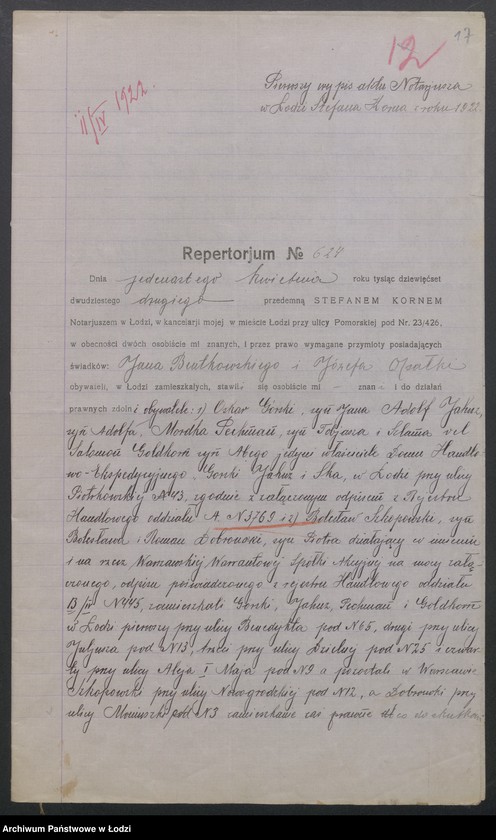 12
17
11/IV 1922.
Pierwszy wypis aktu Notarjusza
w Łodzi Stefana Korna z roku 1922.
Repertorjum № 628
Dnia jedenastego kwietnia roku tysiąc dziewięćset
dwudziestego drugiego przedemną STEFANEM KORNEM
Notarjuszem w Łodzi, w kancelarji mojej w mieście Łodzi przy ulicy Pomorskiej pod Nr. 23/426,
w obecności dwóch osobiście mi znanych, i przez prawo wymagane przymioty posiadających
świadków: Jana Bentkowskiego i Józefa Opałki
obywateli, w Łodzi zamieszkałych, stawili się osobiście mi – znani i do działań
prawnych zdolni obywatele: 1) Oskar Górski, syn Jana Adolf Jakusz,
syn Adolfa, Mordka Pechman, syn Tobjasza i Szlama vel
Salomon Goldkorn syn Abego jedyni właściciele Domu Handlo-
wo-Ekspedycyjnego Górski Jakusz i Ska, w Łodzi przy ulicy
Piotrkowskiej №43, zgodnie z załączonym odpisem z Rejestru
Handlowego oddziału A. №3769 i 2) Bolesław Szkopowski, syn
Bolesława i Roman Dobrowski, syn Piotra działający w imieniu
i na rzecz Warszawskiej Warrantowej Spółki Akcyjnej na mocy załą-
czonego, odpisu poświadczonego z rejestru Handlowego oddziału
B/IV №445, zamieszkali Górski, Jakusz, Pechman i Goldkorn
w Łodzi pierwszy przy ulicy Benedykta pod №65, drugi przy ulicy
Juljusza pod №13, trzeci przy ulicy Dzielnej pod №25 i czwar-
ty przy ulicy Aleja I Maja pod №9 a pozostali w Warszawie
Szkopowski przy ulicy Nowogrodzkiej pod №12, a Dobrowski przy
ulicy Moniuszki pod №3 zamieszkanie zaś prawne co do skutków
Archiwum Państwowe w Łodzi